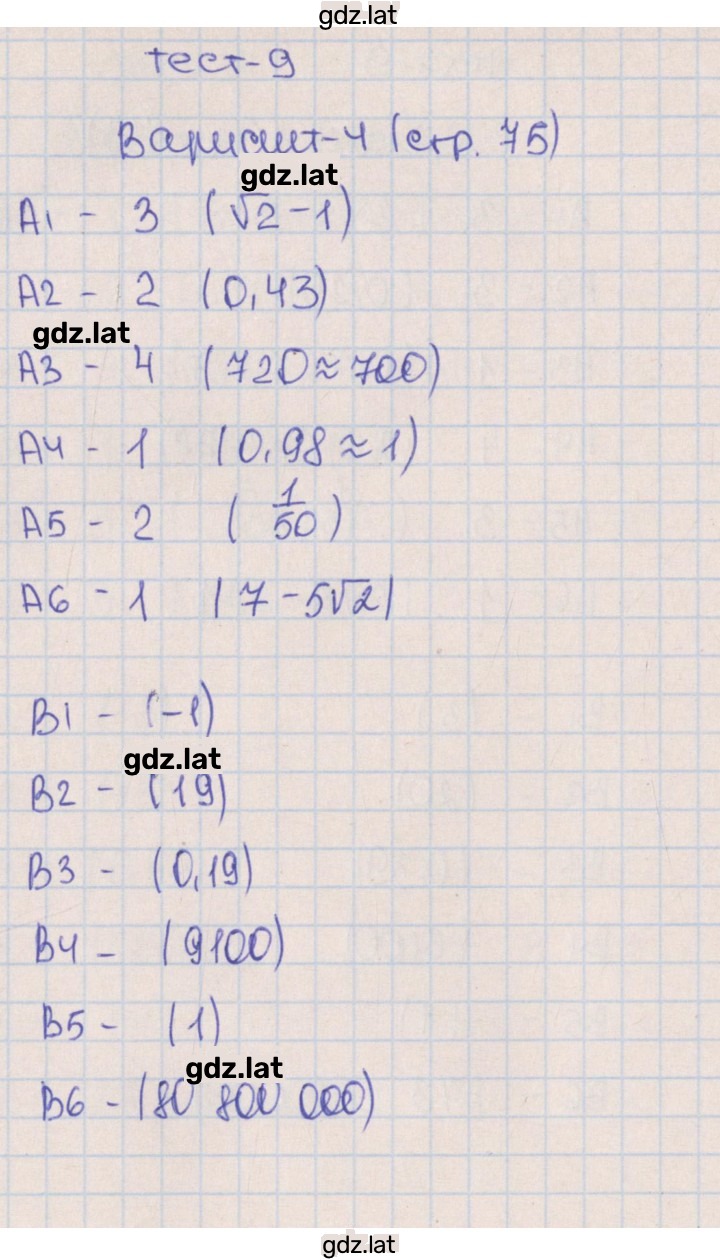 gdz.lat
тест-9
Вариант-4 (стр. 75)
gdz.lat
А1 - 3 (√2-1)
А2 - 2 (0,43)
gdz.lat
А3 - 4 (720≈700)
А4 - 1 (0,98≈1)
А5 - 2 (1/50)
А6 - 1 |7-5√2|
В1 - (-1)
gdz.lat
В2 - (19)
В3 - (0,19)
В4 - (9100)
В5 - (1)
gdz.lat
В6 - (80 800 000)
gdz.lat